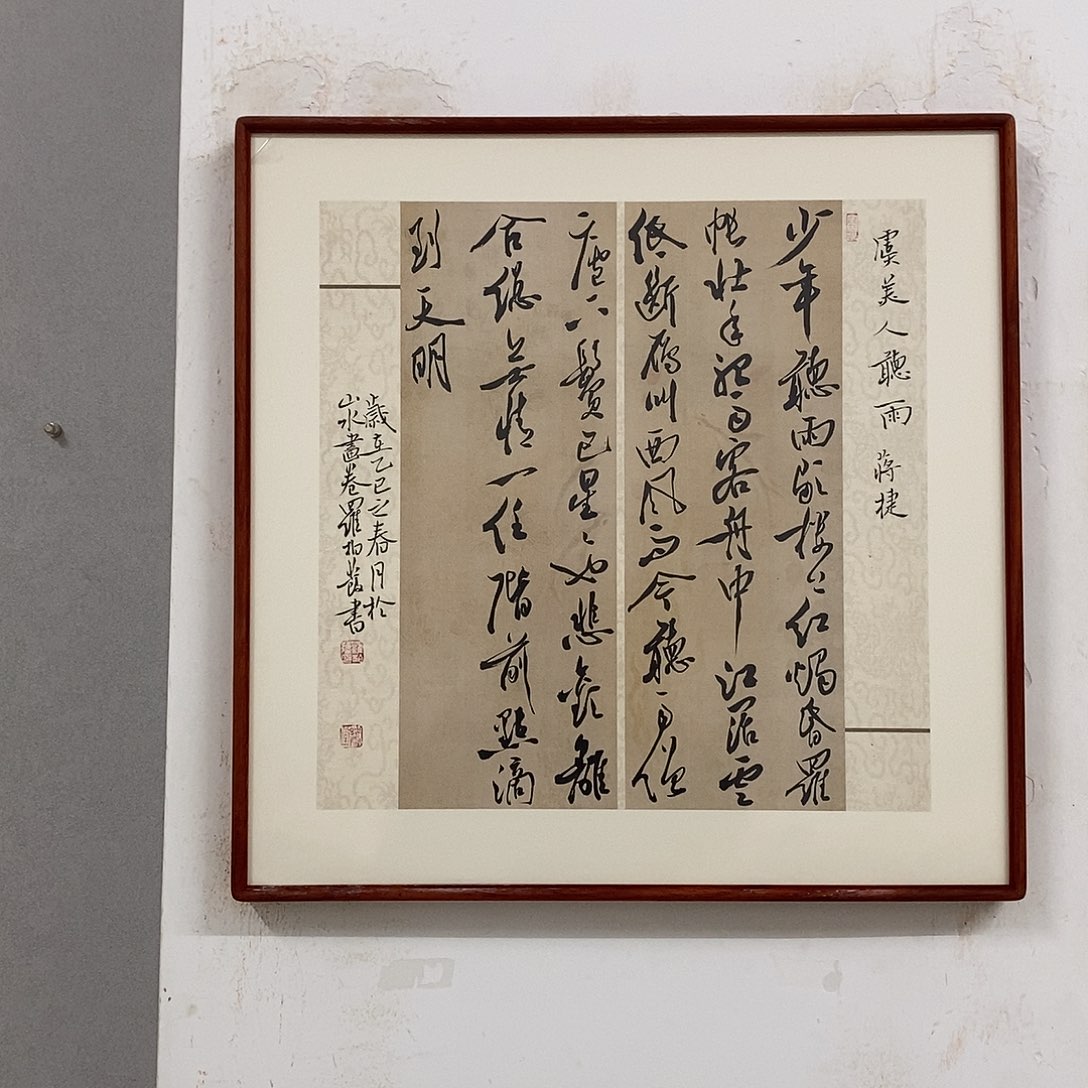 虞美人聽雨 蔣捷
少年聽雨歌樓上紅燭昏羅
帳壯年聽雨客舟中江闊雲
低斷雁叫西風而今聽雨僧
廬下鬢已星〻也悲歡離
合總無情一任階前點滴
到天明
歲在乙巳之春月於
山水畫卷羅書